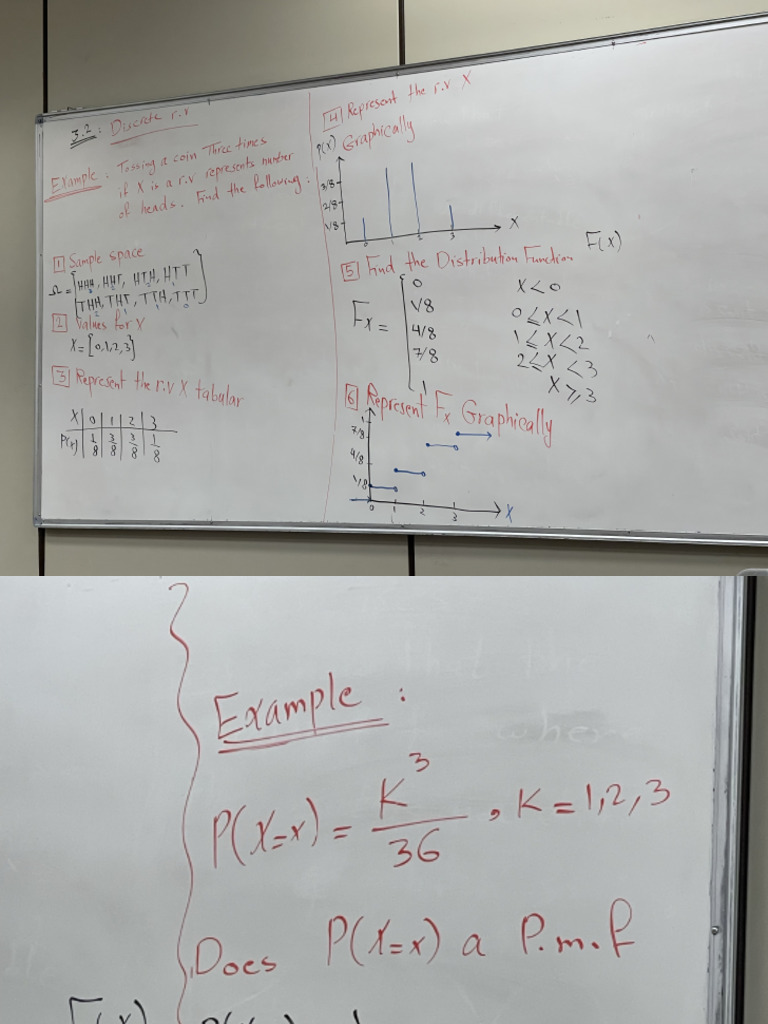 3.2: Discrete r.v
Example: Tossing a coin Three times
if X is a r.v represents number
of heads. Find the following:
1 Sample space
Ω = {HHH, HHT, HTH, HTT
THH, THT, TTH, TTT}
2 Values for X
X = {0,1,2,3}
3 Represent the r.v X tabular
X 0 1 2 3
P(x) 1/8 3/8 3/8 1/8
4 Represent the r.v X
Graphically
P(x)
3/8
2/8
1/8
0 1 2 3 X
5 Find the Distribution Function F(x)
Fx =
0 X < 0
1/8 0 ≤ X < 1
4/8 1 ≤ X < 2
7/8 2 ≤ X < 3
1 X ≥ 3
6 Represent Fx Graphically
1
7/8
4/8
1/8
0 1 2 3 X
Example:
P(X=x) = K³/36, K = 1,2,3
Does P(X=x) a P.m.f
F(x)